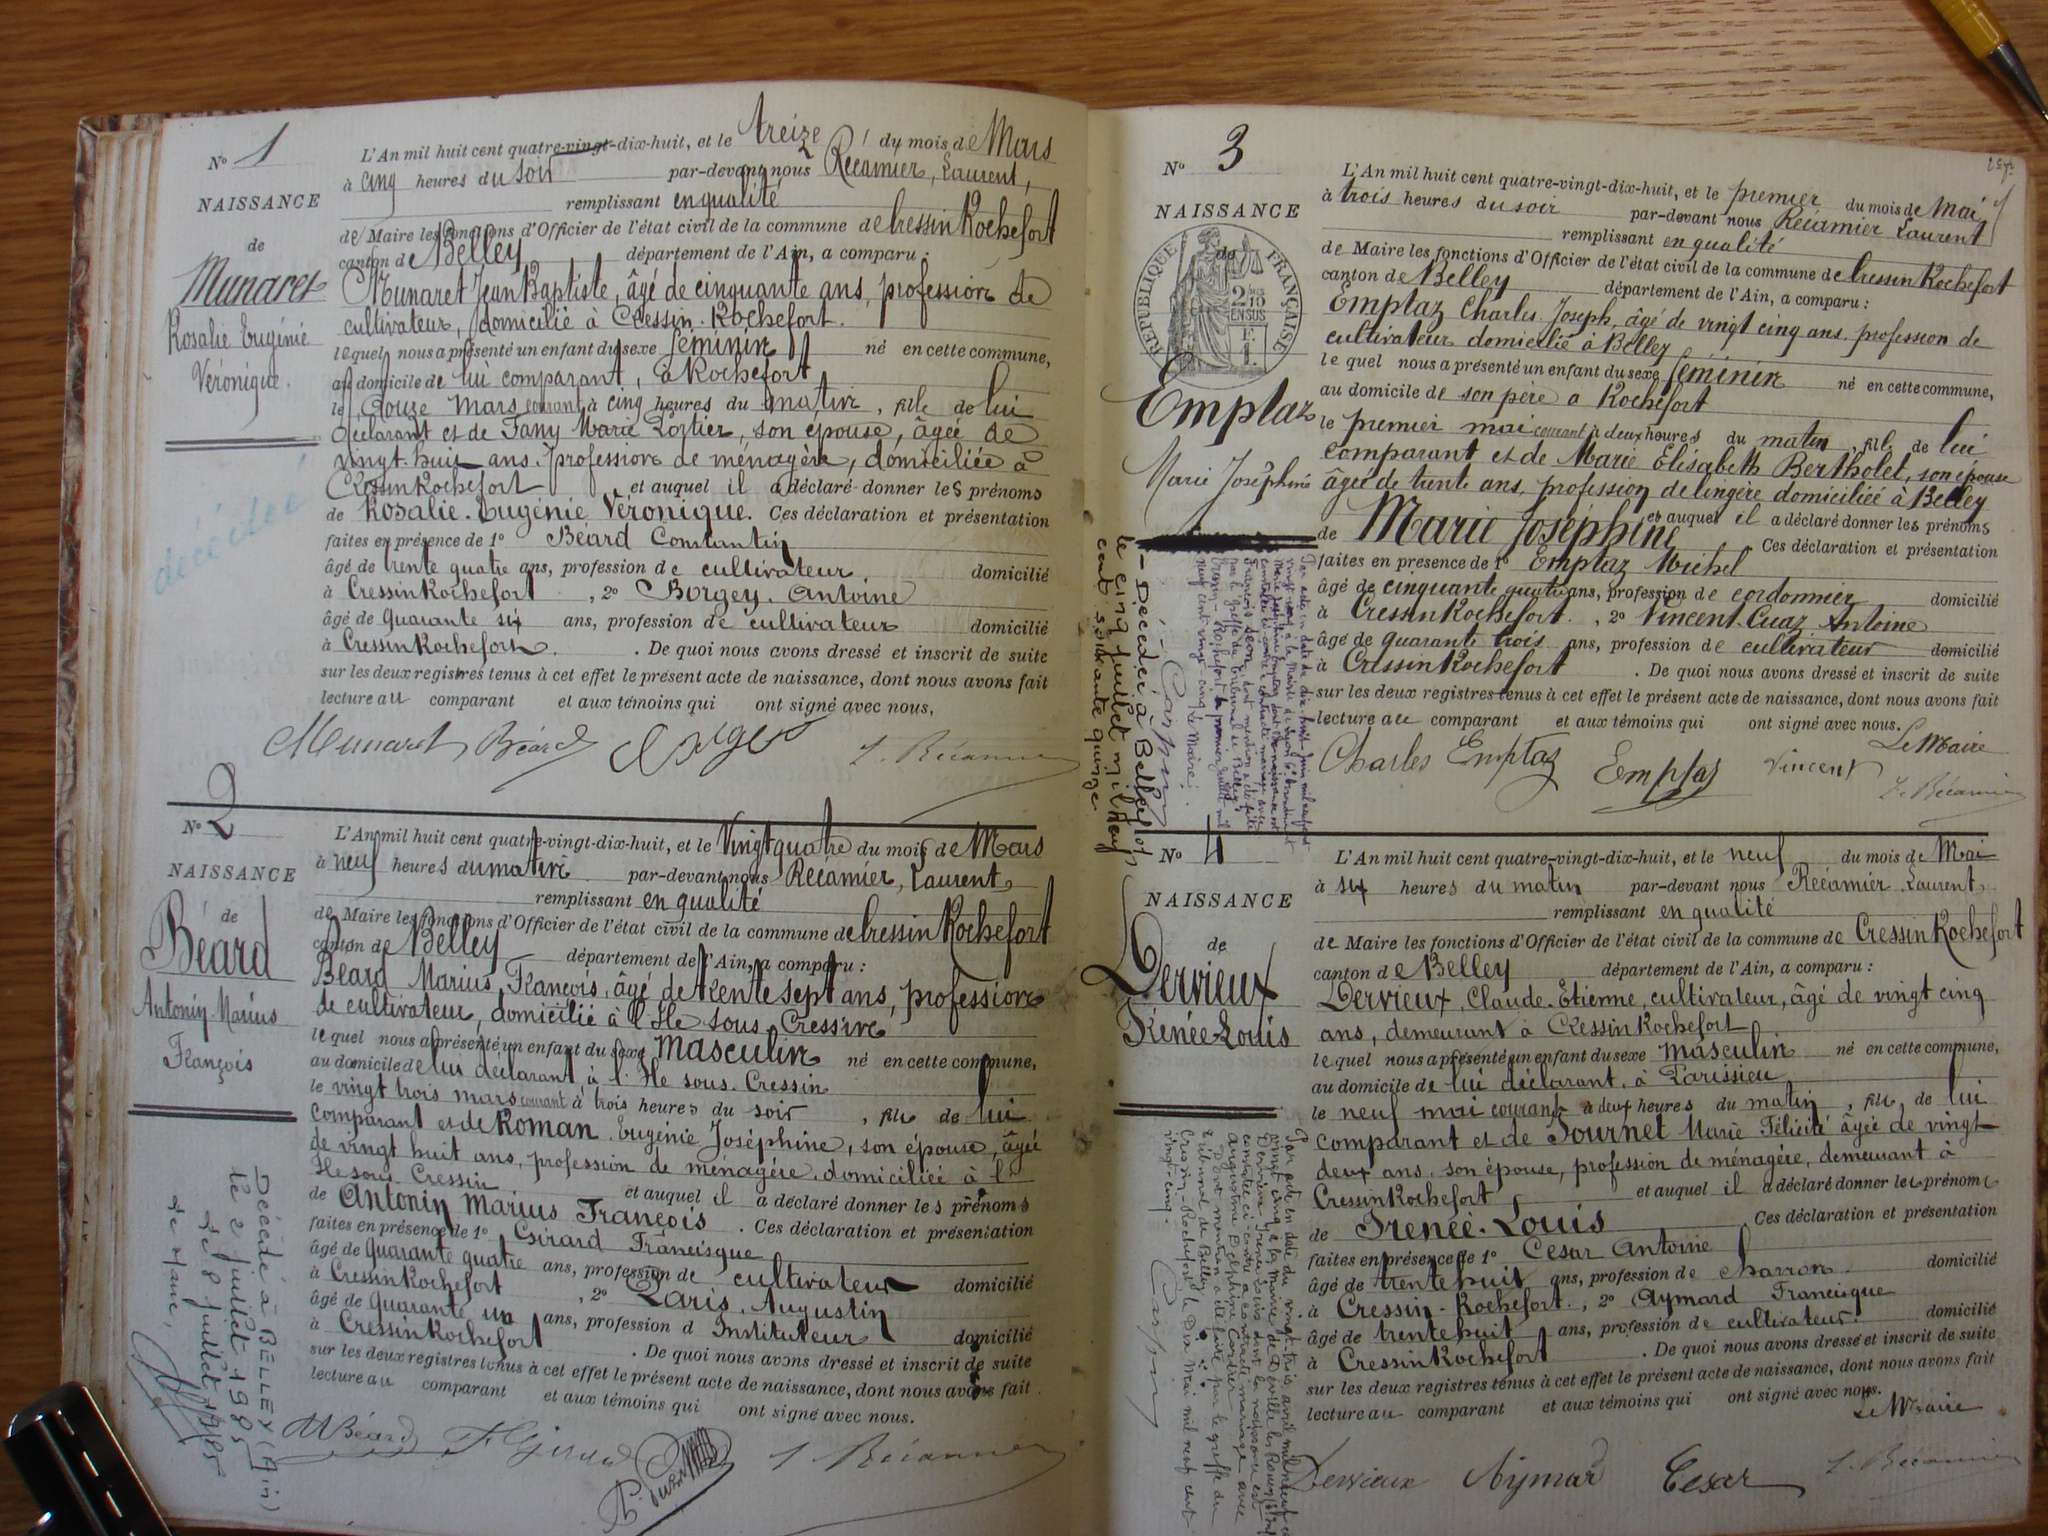 No 1
NAISSANCE
de
Munaret
Rosalie Eugénie
Véronique.
décédée
L'An mil huit cent quatre-vingt-dix-huit, et le treize du mois de Mars
à cinq heures du soir par-devant nous Récamier, Laurent,
remplissant en qualité
de Maire les fonctions d'Officier de l'état civil de la commune de Cressin Rochefort
canton de Belley département de l'Ain, a comparu :
Munaret Jean Baptiste, âgé de cinquante ans, profession de
cultivateur, domicilié à Cressin-Rochefort.
lequel nous a présenté un enfant du sexe féminin né en cette commune,
au domicile de lui comparant, à Rochefort
le douze Mars courant à cinq heures du matin, fille de lui
déclarant et de Fany Marie, son épouse, âgée de
vingt-huit ans, profession de ménagère, domiciliée à
Cressin Rochefort et auquel il a déclaré donner les prénoms
de Rosalie-Eugénie Véronique. Ces déclaration et présentation
faites en présence de 1o Béard Constantin
âgé de trente quatre ans, profession de cultivateur domicilié
à Cressin Rochefort, 2o Borgey Antoine
âgé de quarante six ans, profession de cultivateur domicilié
à Cressin Rochefort. De quoi nous avons dressé et inscrit de suite
sur les deux registres tenus à cet effet le présent acte de naissance, dont nous avons fait
lecture au comparant et aux témoins qui ont signé avec nous.
Munaret Béard Borgey L. Récamier
No 2
NAISSANCE
de
Béard
Antonin Marius
François
Décédé à BELLEY (Ain)
le 2 juillet 1985
le 8 juillet 1985
Le Maire,
L'An mil huit cent quatre-vingt-dix-huit, et le vingt quatre du mois de Mars
à neuf heures du matin par-devant nous Récamier, Laurent,
remplissant en qualité
de Maire les fonctions d'Officier de l'état civil de la commune de Cressin Rochefort
canton de Belley département de l'Ain, a comparu :
Béard Marius, François, âgé de trente sept ans, profession
de cultivateur, domicilié à l'Ile sous Cressin
lequel nous a présenté un enfant du sexe masculin né en cette commune,
au domicile de lui déclarant, à l'Ile sous Cressin
le vingt trois mars courant à trois heures du soir, fils de lui
comparant et de Roman Eugénie Joséphine, son épouse, âgée
de vingt huit ans, profession de ménagère, domiciliée à l'
Ile sous Cressin et auquel il a déclaré donner les prénoms
de Antonin Marius François. Ces déclaration et présentation
faites en présence de 1o Girard Francisque
âgé de quarante quatre ans, profession de cultivateur domicilié
à Cressin Rochefort, 2o Paris, Augustin
âgé de quarante un ans, profession d'Instituteur domicilié
à Cressin Rochefort. De quoi nous avons dressé et inscrit de suite
sur les deux registres tenus à cet effet le présent acte de naissance, dont nous avons fait
lecture au comparant et aux témoins qui ont signé avec nous.
MBéard F Girard L. Récamier
No 3
NAISSANCE
de
RÉPUBLIQUE FRANÇAISE
2/10 EN SUS
Emptaz
Marie Joséphine
Décédée à Belley (01)
le cinq juillet mil neuf
cent soixante quinze
L'An mil huit cent quatre-vingt-dix-huit, et le premier du mois de Mai
à trois heures du soir par-devant nous Récamier Laurent
remplissant en qualité
de Maire les fonctions d'Officier de l'état civil de la commune de Cressin Rochefort
canton de Belley département de l'Ain, a comparu :
Emptaz Charles Joseph, âgé de vingt cinq ans, profession de
cultivateur domicilié à Belley
lequel nous a présenté un enfant du sexe féminin né en cette commune,
au domicile de son père à Rochefort
le premier mai courant à deux heures du matin, fille de lui
comparant et de Marie Elisabeth Bertholet, son épouse
âgée de trente ans, profession de lingère domiciliée à Belley
et auquel il a déclaré donner les prénoms
de Marie Joséphine Ces déclaration et présentation
faites en présence de 1o Emptaz Michel
âgé de cinquante quatre ans, profession de cordonnier domicilié
à Cressin Rochefort, 2o Vincent Cuaz Antoine
âgé de quarante trois ans, profession de cultivateur domicilié
à Cressin Rochefort. De quoi nous avons dressé et inscrit de suite
sur les deux registres tenus à cet effet le présent acte de naissance, dont nous avons fait
lecture au comparant et aux témoins qui ont signé avec nous.
Le Maire
Charles Emptaz Emptaz Vincent L. Récamier
No 4
NAISSANCE
de
Dervieux
Irénée Louis
Par acte en date du vingt-trois avril mil neuf cent
vingt cinq à la mairie de
Dervieux Irénée Louis dont la naissance est
constatée ci-contre a contracté mariage avec
Augustine Delphine Cordier
Dont mention a été faite par le greffe du
tribunal de Belley
Cressin-Rochefort le Dix Mai mil neuf cent
vingt-cinq.
L'An mil huit cent quatre-vingt-dix-huit, et le neuf du mois de Mai
à six heures du matin par-devant nous Récamier Laurent,
remplissant en qualité
de Maire les fonctions d'Officier de l'état civil de la commune de Cressin Rochefort
canton de Belley département de l'Ain, a comparu :
Dervieux, Claude-Etienne, cultivateur, âgé de vingt cinq
ans, demeurant à Cressin Rochefort
lequel nous a présenté un enfant du sexe masculin né en cette commune,
au domicile de lui déclarant, à Parissieu
le neuf mai courant à deux heures du matin, fils de lui
comparant et de Tournet Marie Félicité âgée de vingt
deux ans, son épouse, profession de ménagère, demeurant à
Cressin Rochefort et auquel il a déclaré donner les prénoms
de Irénée-Louis Ces déclaration et présentation
faites en présence de 1o César Antoine
âgé de trente huit ans, profession de charron domicilié
à Cressin-Rochefort, 2o Aymard Francisque
âgé de trente huit ans, profession de cultivateur domicilié
à Cressin Rochefort. De quoi nous avons dressé et inscrit de suite
sur les deux registres tenus à cet effet le présent acte de naissance, dont nous avons fait
lecture au comparant et aux témoins qui ont signé avec nous.
Le Maire
Dervieux Aymard Cesar L. Récamier